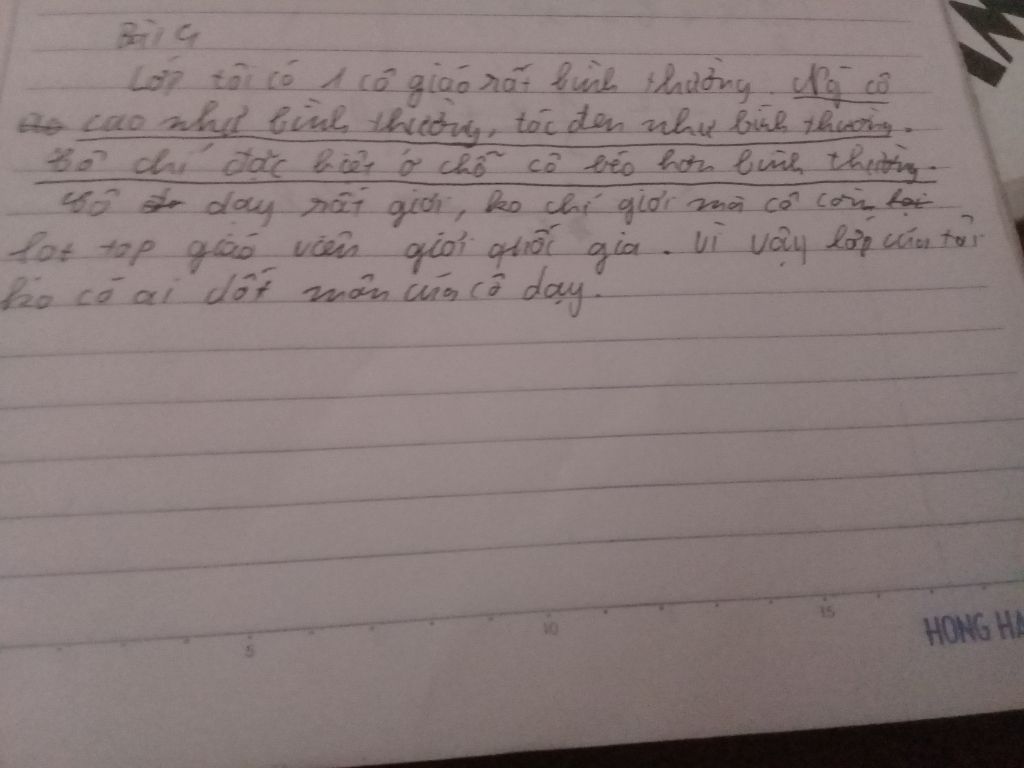 Bài 4
Lớp tôi có 1 cô giáo rất bình thường. Ng cô
cao như bình thường, tóc đen như bình thường.
Cô chỉ đặc biệt ở chỗ cô béo hơn bình thường.
Cô dạy rất giỏi, ko chỉ giỏi mà cô còn
lọt top giáo viên giỏi quốc gia. Vì vậy lớp của tôi
ko có ai dốt môn của cô dạy.
5 10 15
HONG HA